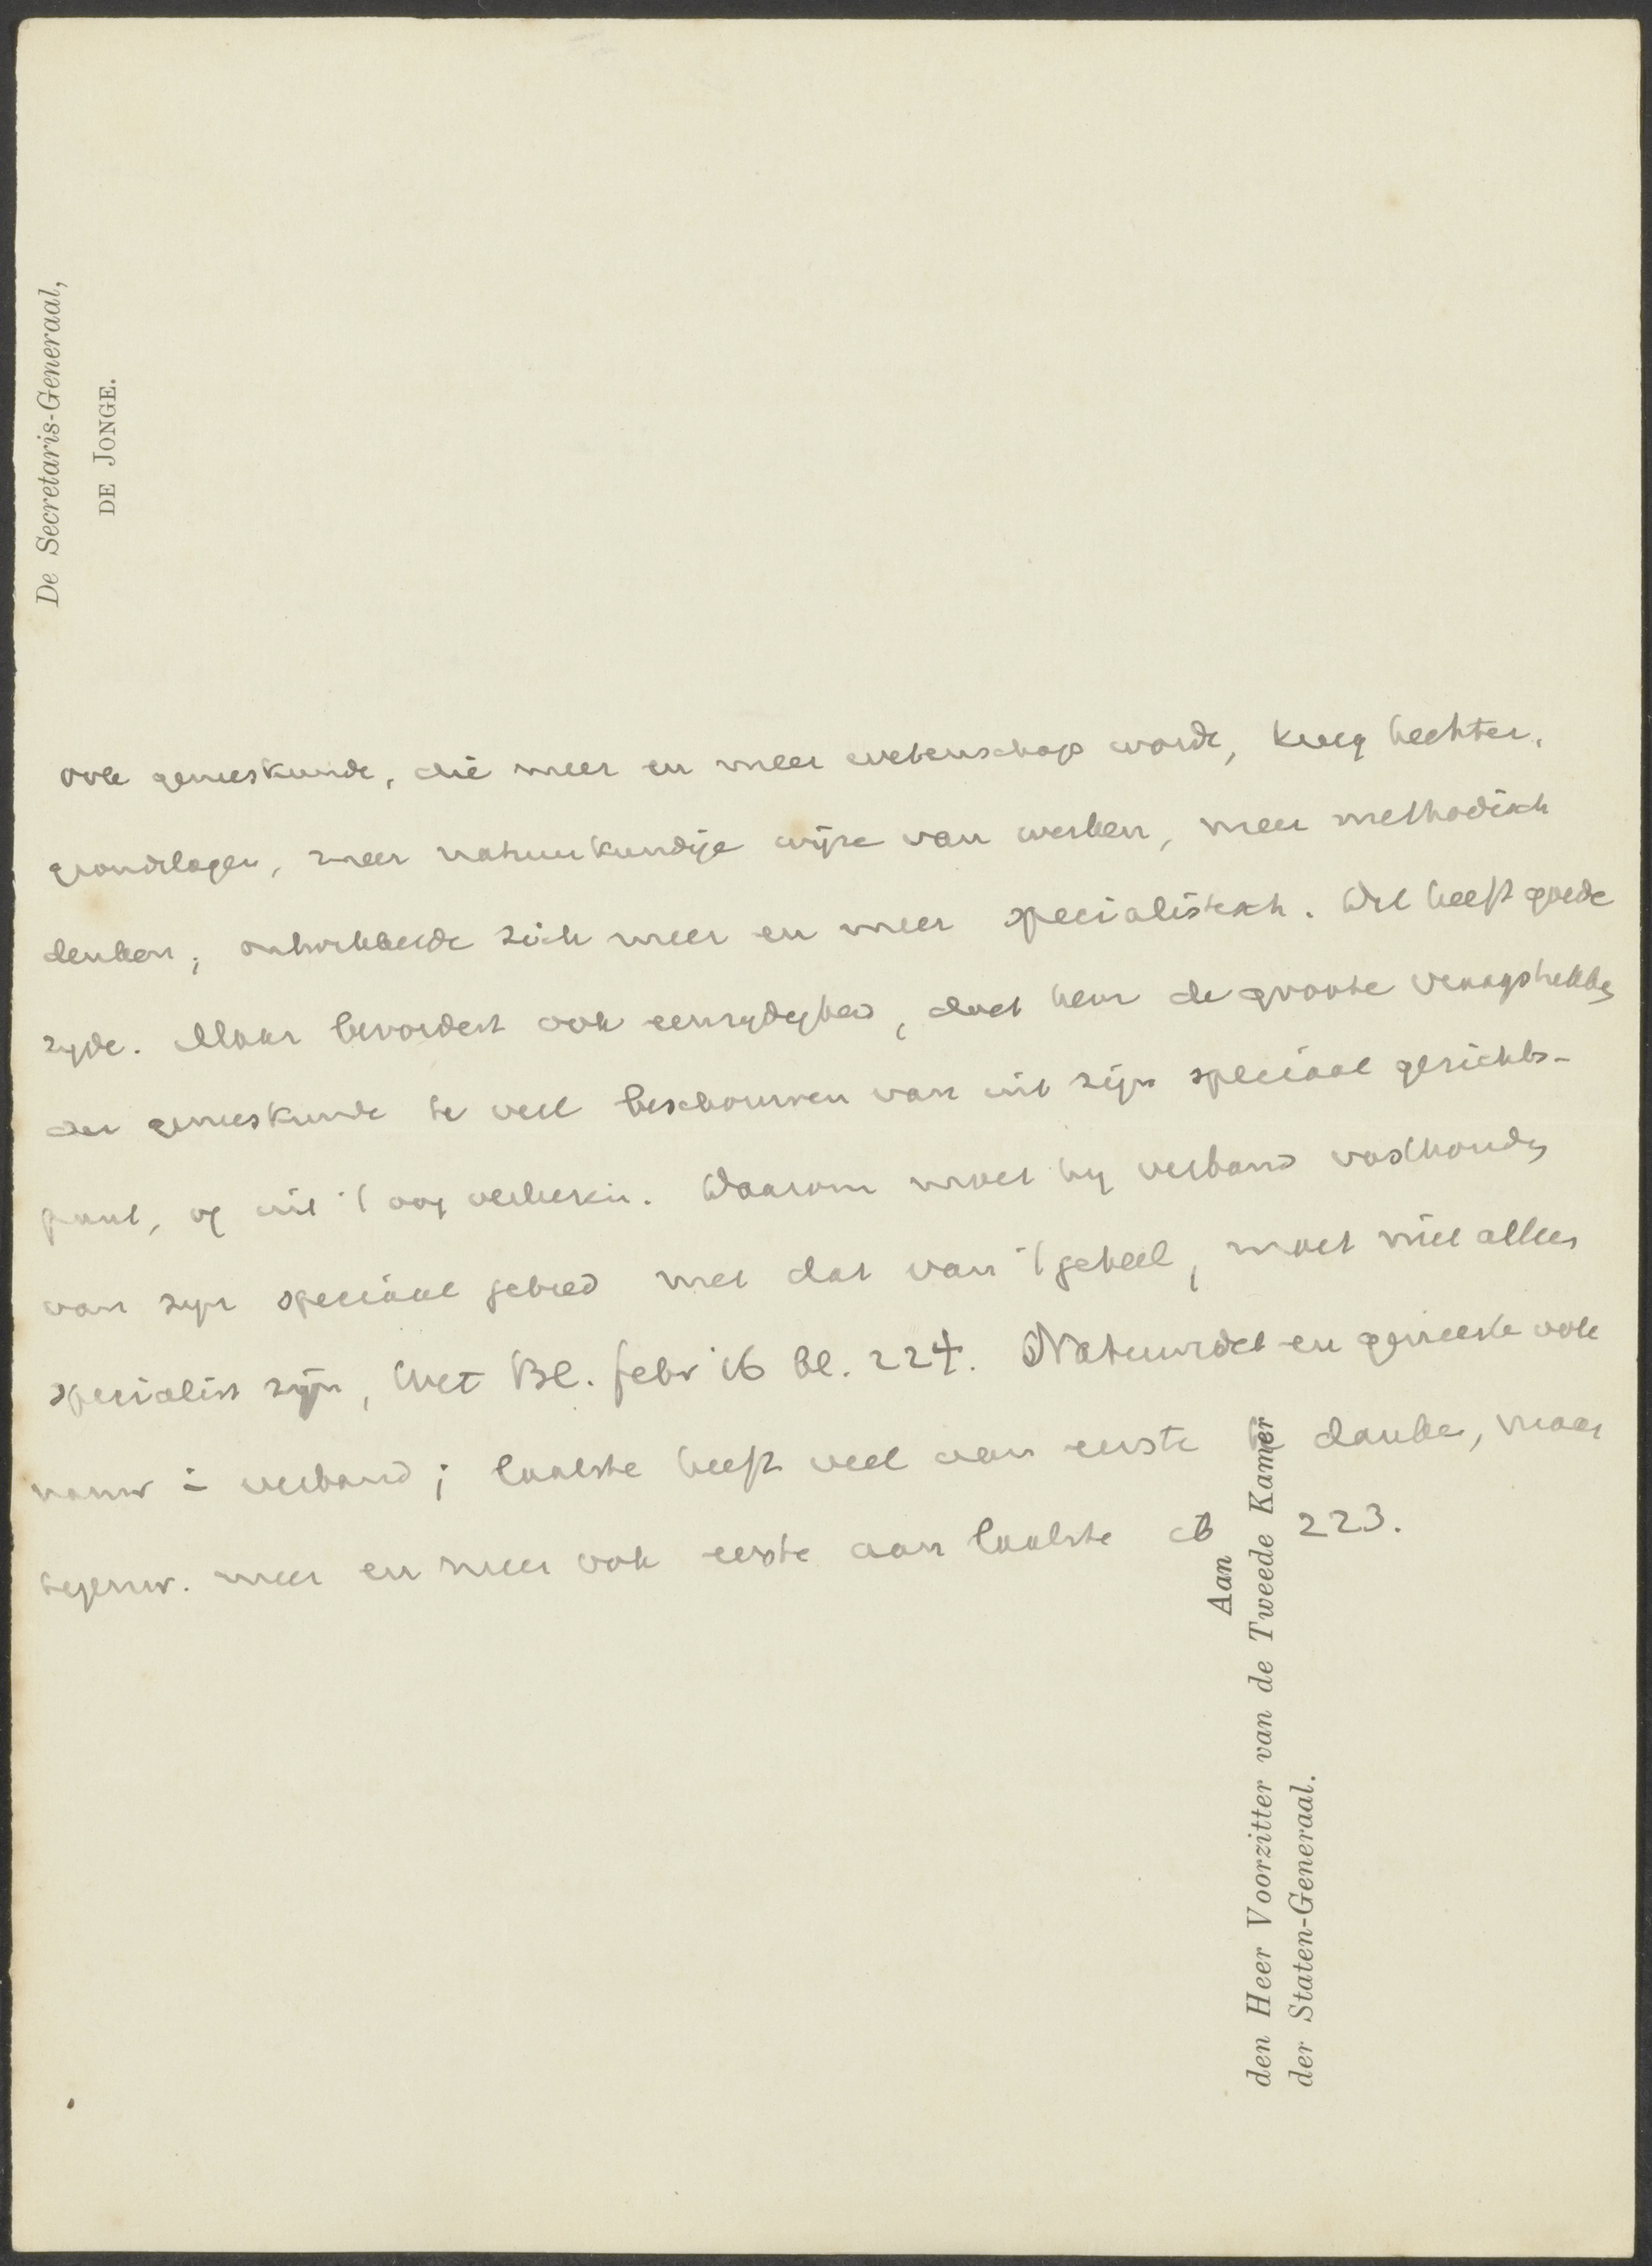 De Secretaris-Generaal,
DE JONGE.
ook geneeskunde, die meer en meer wetenschap wordt, kreeg hechter.
grondslagen, meer natuurkundige wijze van werken, meer methodisch
denken; ontwikkelde zich meer en meer specialistisch. Dit heeft goede
zijde. Maar bevordert ook eenzijdigheid, doet hem de groote vraagstukken
der geneeskunde te veel beschouwen van uit zijn speciaal gezichts-
punt, of uit 't oog verliezen. Daarom moet hij verband vasthouden
van zijn speciaal gebied met dat van 't geheel, moet niet alleen
specialist zijn, Wet Bl. febr '16 bl. 224. Natuurwet en geneesk ook
nauw i verband; laatste heeft veel aan eerste te danken, maar
tegenw. meer en meer ook eerste aan laatste ib 223.
Aan
den Heer Voorzitter van de Tweede Kamer
der Staten-Generaal.